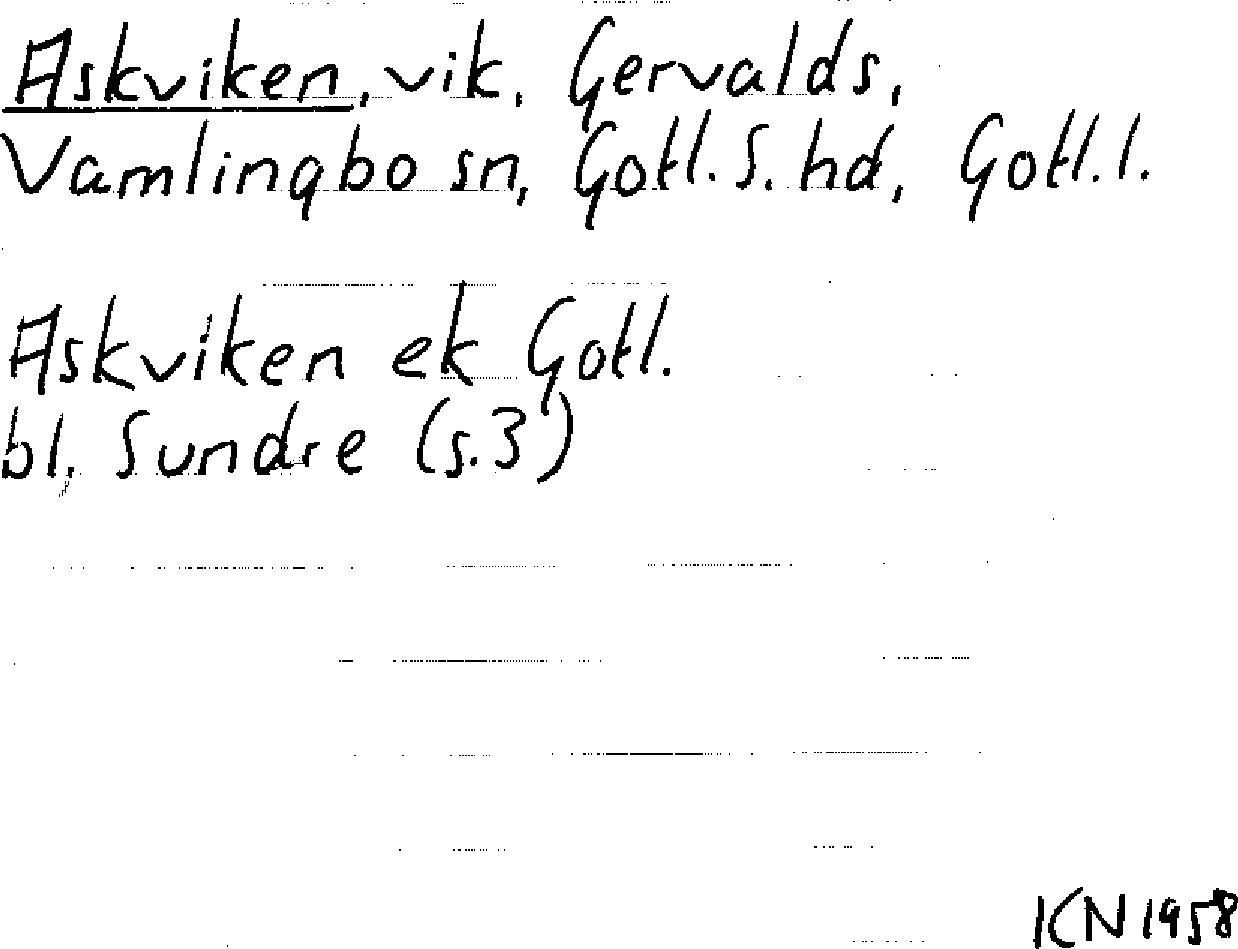 Askviken, vik, Gervalds,
Vamlingbo sn, Gotl. S. hd, Gotl. l.
Askviken ek Gotl.
bl. Sundre (s. 3)
KN 1958